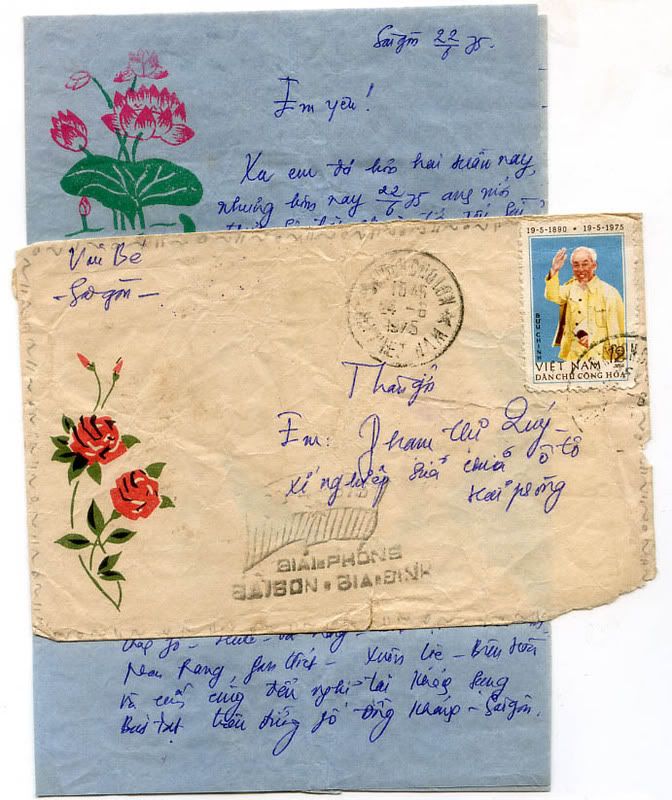 Sài gòn 22/6 75.
Em yêu!
Xa em đã hơn hai tuần nay,
nhưng hôm nay 22/6 75 anh mới
Văn Bé
- Sài gòn -
1975
VIỆT NAM
19-5-1890 • 19-5-1975
BƯU CHÍNH
12
VIỆT NAM
DÂN CHỦ CỘNG HÒA
Thân gửi
Em: Phạm thị Quý
Xí nghiệp sửa chữa ô tô
Hải phòng
GIẢI-PHÓNG
SÀIGÒN-GIA-ĐỊNH
Phan Rang, Phan thiết - Xuân lộc - Biên Hòa
và cuối cùng đến nghỉ tại
đường số Đồng Khánh - Sài gòn.